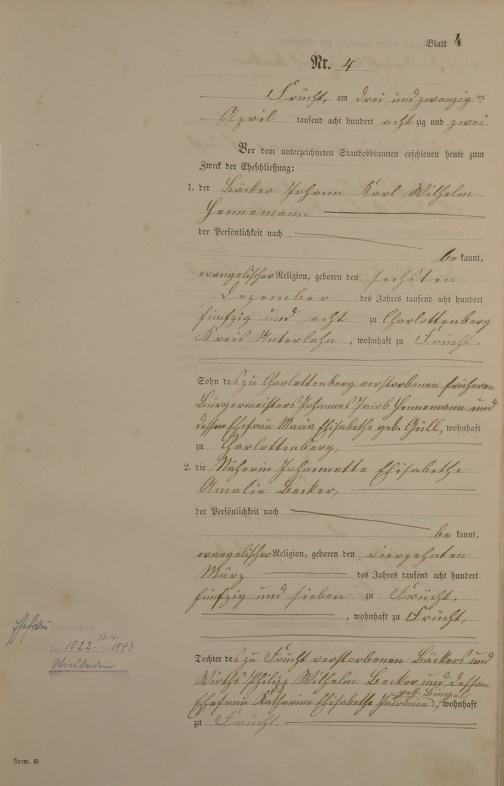 Blatt 4
Nr. 4
Frücht, am drei und zwanzig ten
April tausend acht hundert acht zig und zwei.
Vor dem unterzeichneten Standesbeamten erschienen heute zum
Zweck der Eheschließung:
1. der Bäcker Johann Karl Wilhelm
Hennemann
der Persönlichkeit nach
be kannt,
evangelischer Religion, geboren den sechsten
Dezember des Jahres tausend acht hundert
fünfzig und acht zu Charlottenberg
Kreis Unterlahn, wohnhaft zu Frücht.
Sohn des zu Charlottenberg verstorbenen früheren
Bürgermeisters Johannes Jacob Hennemann und
dessen Ehefrau Maria Elisabethe geb. Güll, wohnhaft
zu Charlottenberg,
2. die Näherin Johannette Elisabethe
Amalie Becker,
der Persönlichkeit nach
be kannt,
evangelischer Religion, geboren den vierzehnten
März des Jahres tausend acht hundert
fünfzig und sieben zu Frücht,
, wohnhaft zu Frücht,
Tochter des zu Frücht verstorbenen Bäckers und
Wirths Philipp Wilhelm Becker und dessen
geb.
Ehefrau Katharine Elisabethe, wohnhaft
zu Frücht.
Ehefrau Gestorben
Nr. 1022 1943
Form. B.